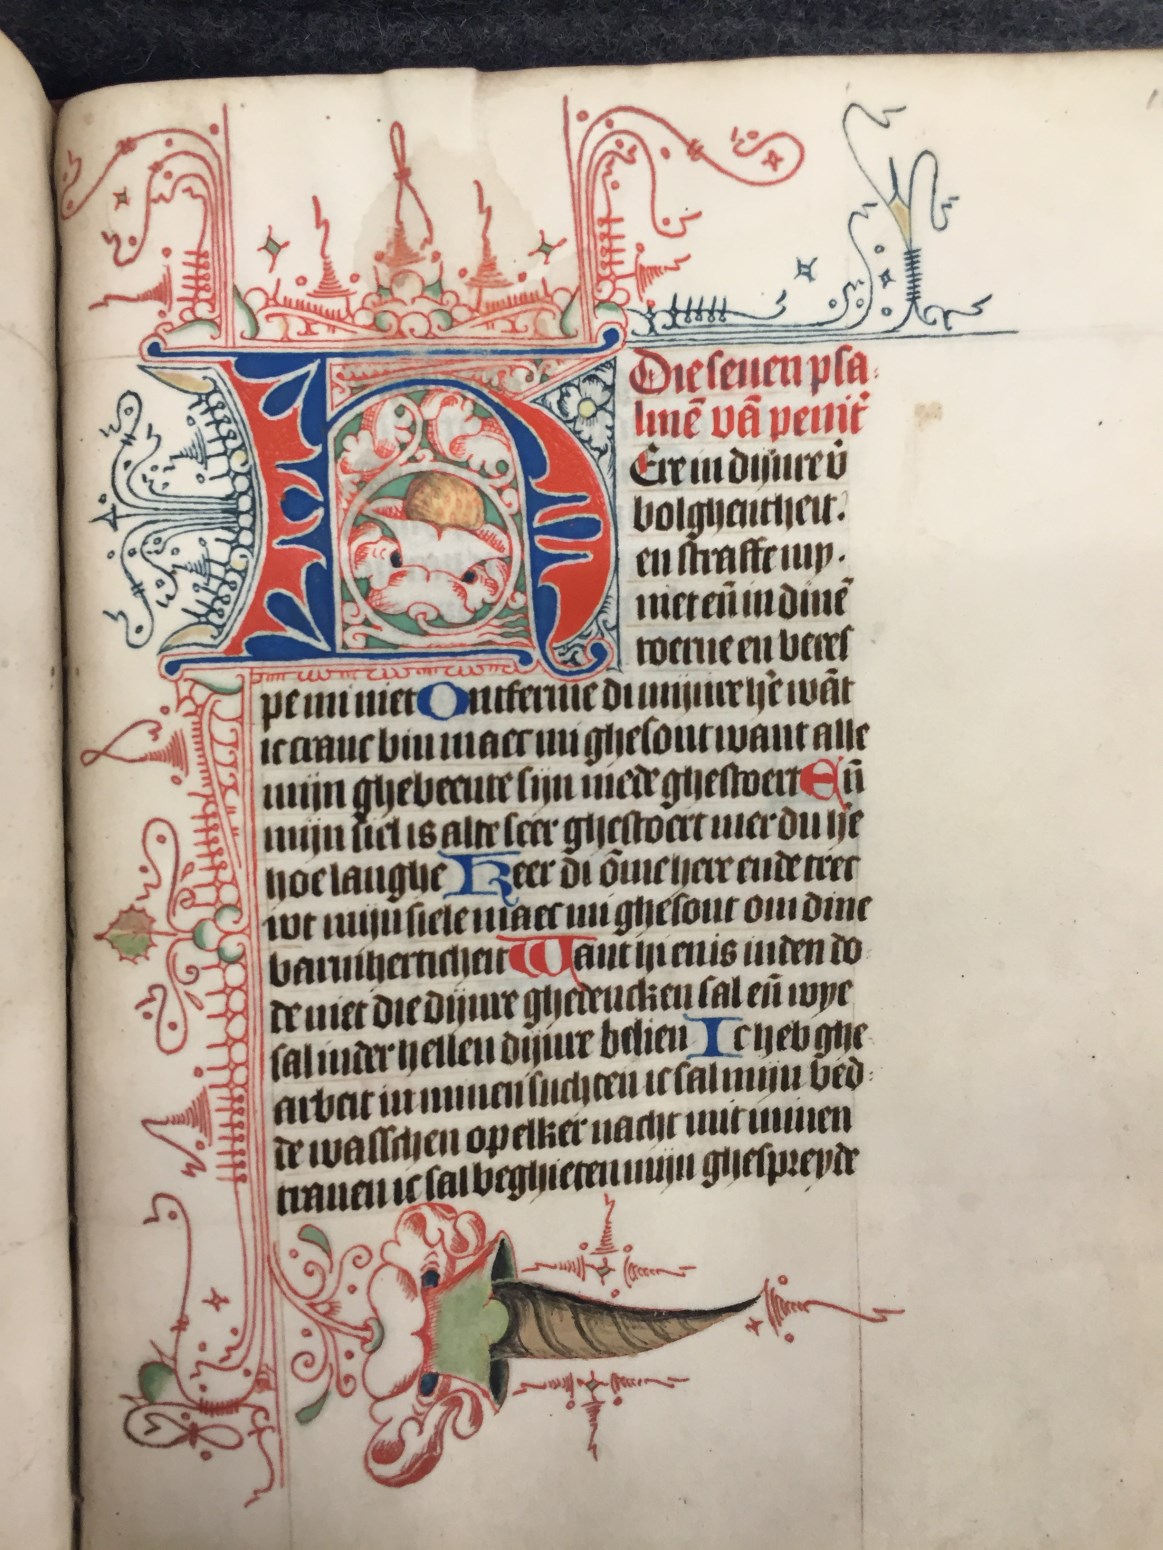 Die seuen psa
lmē vā penit̄
HEre in dijnre v̄
bolghentheit.
en straffe my.
niet en̄ in dinē
toerne en beres
pe mi niet Ontferme di mijnre hr̄e wāt
ic cranc bin maec mi ghesont want alle
mijn ghebeente sijn mede ghestoert En̄
mijn siel is alte seer ghestoert mer du hr̄e
hoe langhe Keer di ōme here ende trec
wt mijn siele maec mi ghesont om dine
barmherticheit Want hi en is inden do
de niet die dijnre ghedencken sal en̄ wye
sal inder hellen dijnre belien Ic heb ghe
arbeit in minen suchten ic sal mijn bed
de wasschen op elker nacht mit minen
tranen ic sal beghieten mijn ghespreyde